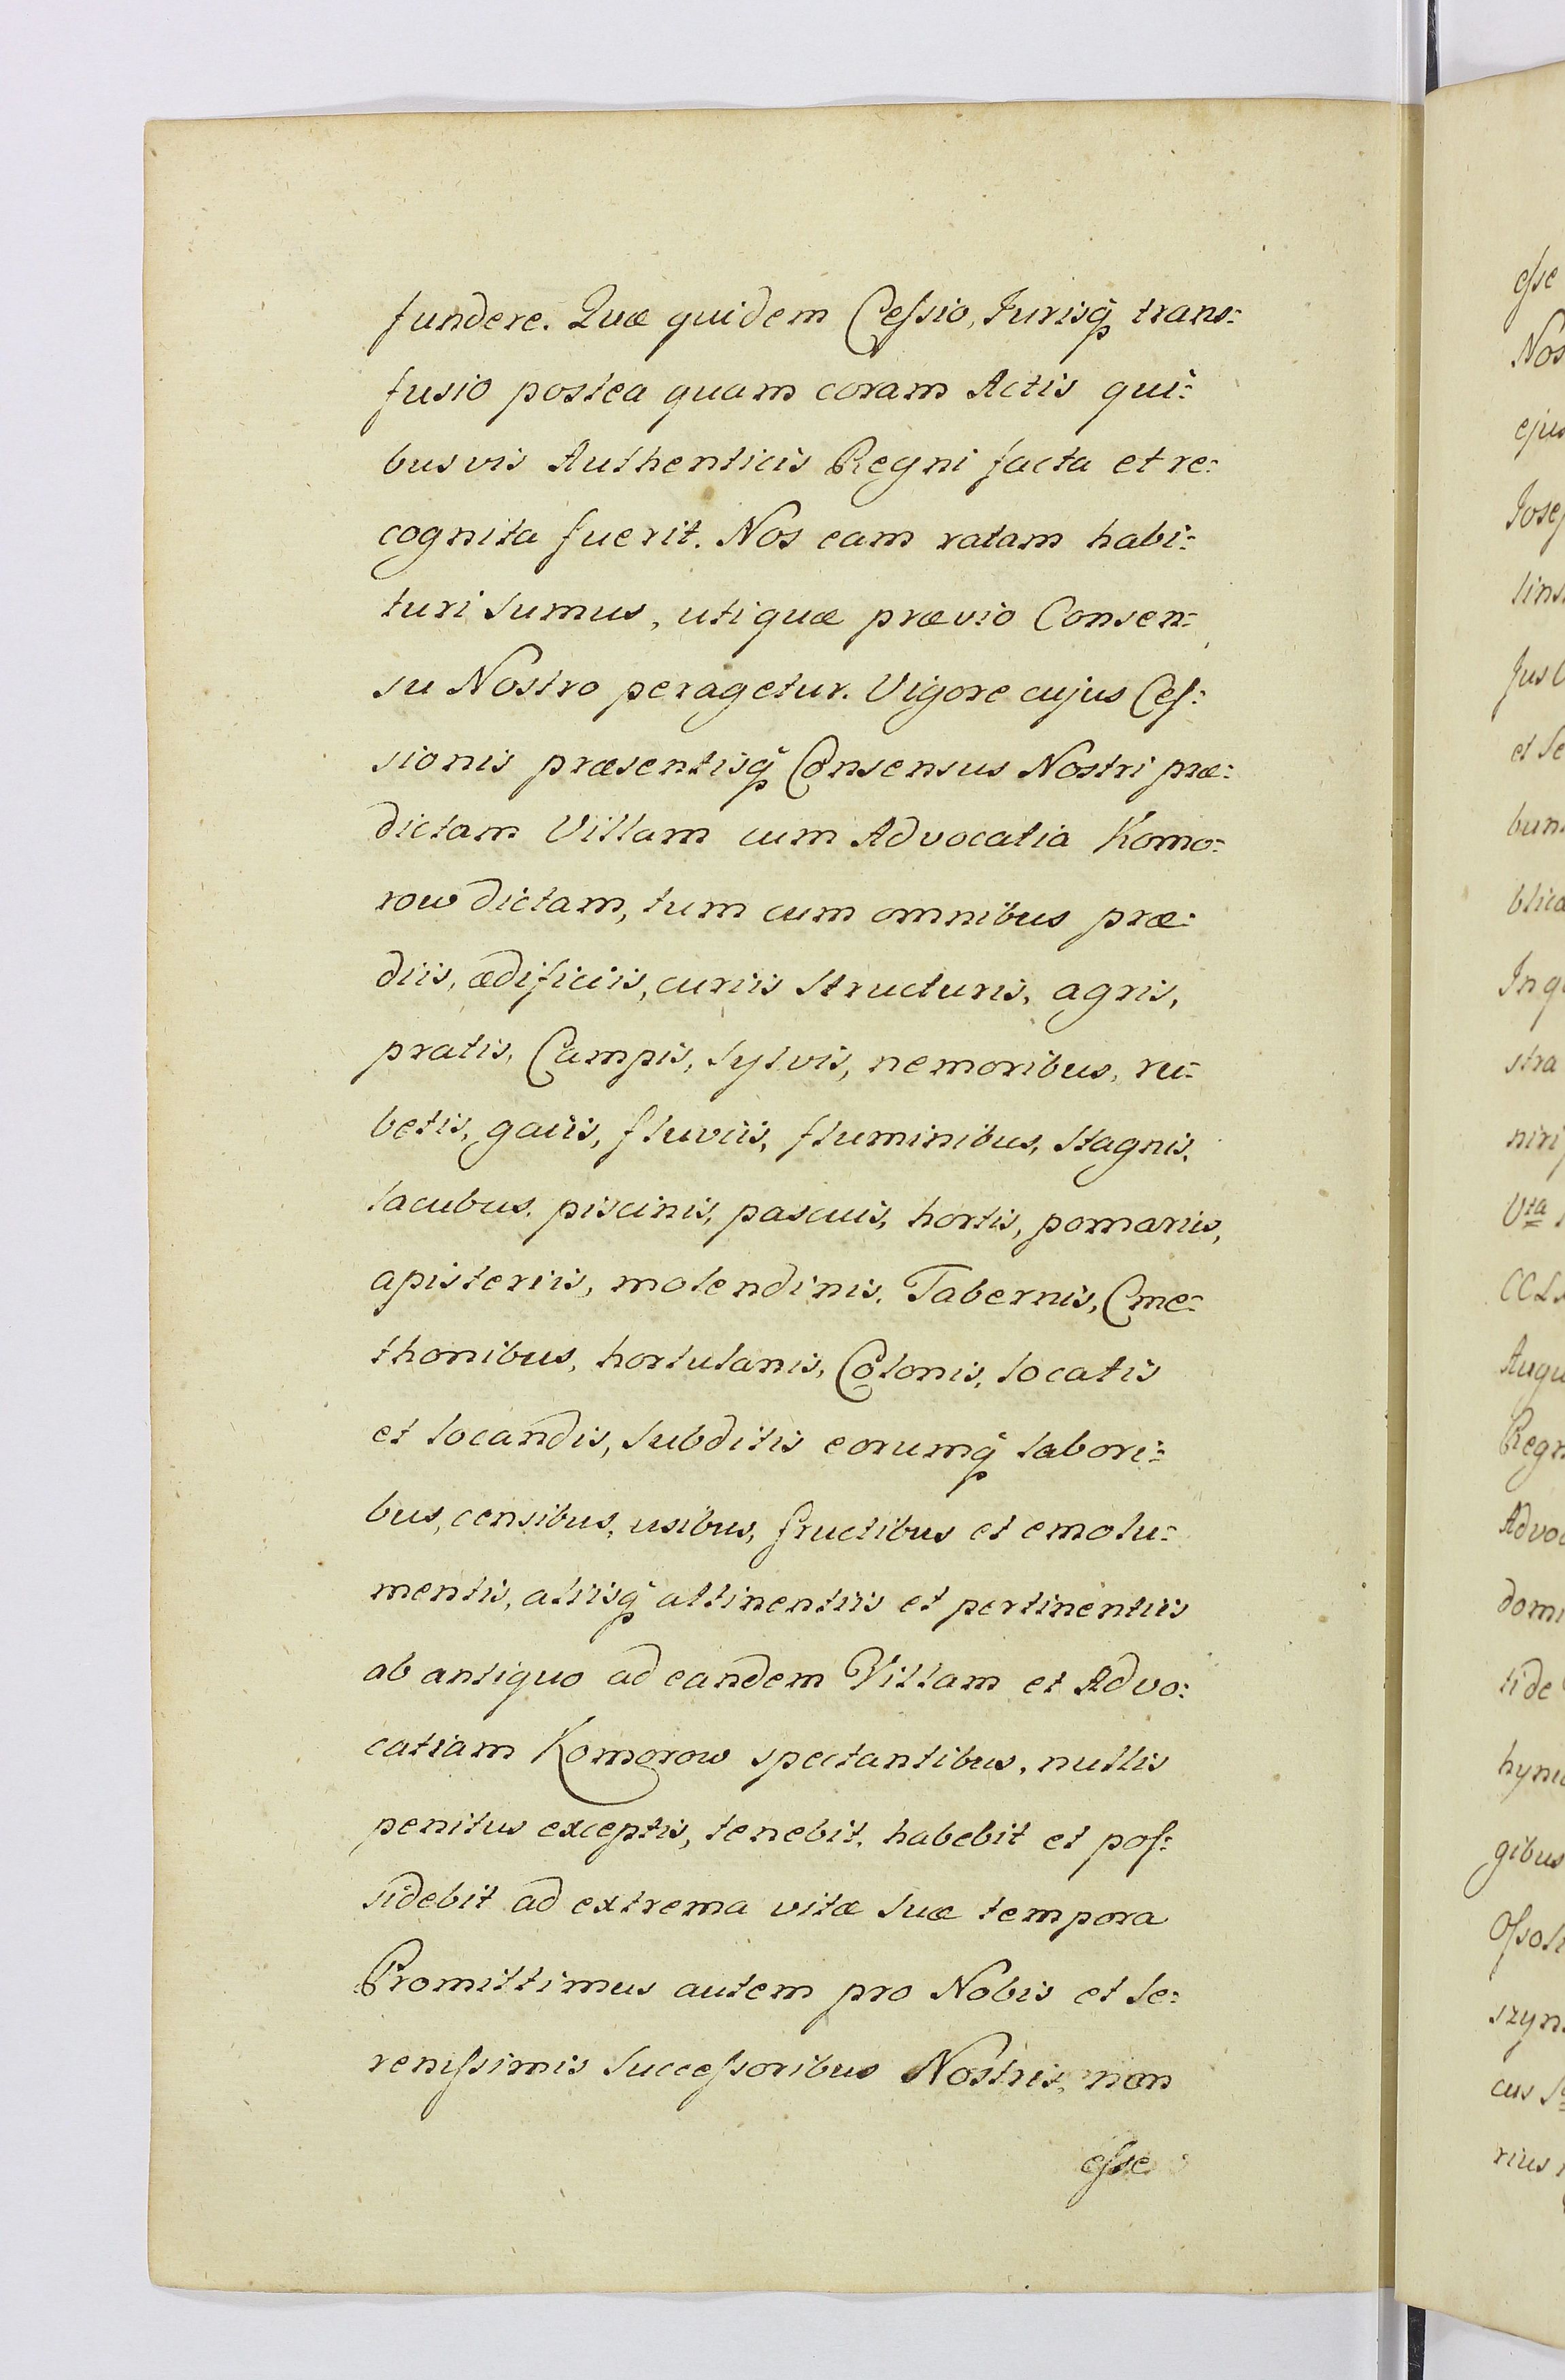 fundere. Quæ quidem Ceſsio, Jurisq̃ trans:
fusio postea quam coram Actis qui:
busvis Authenticis Regni facta et re:
cognita fuerit. Nos eam ratam habi:
turi sumus, utiquæ prævio Consen:
su Nostro peragetur. Vigore cujus Ceſ:
sionis præsentisq̃ Consensus Nostri præ:
dictam Villam cum Advocatia Komo:
row dictam, tum cum omnibus præ:
diis, ædificiis, curiis structuris, agris,
pratis, Campis, sylvis, nemoribus, ru:
betis, gaiis, fluviis, fluminibus, stagnis,
lacubus, piscinis, pascuis, hortis, pomariis,
apisteriis, molendinis, Tabernis, Cme:
thonibus, hortulanis, Colonis, locatis
et locandis, subditis eorumq̃ labori:
bus, censibus, usibus, fructibus et emolu:
mentis, aliisq̃ attinentiis et pertinentiis
ab antiquo ad eandem Villam et Advo:
catiam Komorow spectantibus, nullis
penitus exceptis, tenebit, habebit et poſ:
sidebit ad extrema vitæ suæ tempora
Promittimus autem pro Nobis et Se:
reniſsimis Succeſsoribus Nostris, non
eſse
eſse
Nos
ejus
Jose
Jus
et Se
bun
blica
In q
stra
niri
V<sup>ra</sup>
Augu
Regn
Advoc
domi
tide
gibus
Oſsol
szyn
cus
rius